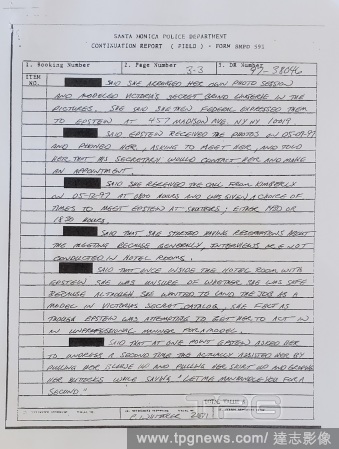 SANTA MONICA POLICE DEPARTMENT
CONTINUATION REPORT ( FIELD ) - FORM SMPD 591
1. Booking Number
2. Page Number
3. DR Number
3-3
97-38046
ITEM NO.
SAID SHE ARRANGED HER OWN PHOTO SESSION
AND MODELED VICTORIA'S SECRET BRAND LINGERIE IN THE
PICTURES. SHE SAID SHE THEN FEDERAL EXPRESSED THEM
TO EPSTEIN AT 457 MADISON AVE. NY. NY 10019
SAID EPSTEIN RECEIVED THE PHOTOS ON 05-09-97
AND PHONED HER, ASKING TO MEET HER, AND TOLD
HER THAT HIS SECRETARY WOULD CONTACT HER AND MAKE
AN APPOINTMENT.
SAID SHE RECEIVED THE CALL FROM KIMBERLY
ON 05-12-97 AT HOURS AND WAS GIVEN A CHOICE OF
TIMES TO MEET EPSTEIN AT SHUTTERS, EITHER OR
HOURS.
SAID THAT SHE STARTED HAVING RESERVATIONS ABOUT
THE MEETING BECAUSE GENERALLY, INTERVIEWS ARE NOT
CONDUCTED IN HOTEL ROOMS.
SAID THAT ONCE INSIDE THE HOTEL ROOM WITH
EPSTEIN SHE WAS UNSURE OF WHETHER SHE WAS SAFE
BECAUSE ALTHOUGH SHE WANTED TO LAND THE JOB AS A
MODEL IN VICTORIA'S SECRET CATALOG, SHE FELT AS
THOUGH EPSTEIN WAS ATTEMPTING TO GET HER TO ACT IN
AN UNPROFESSIONAL MANNER FOR A MODEL.
SAID THAT AT ONE POINT EPSTEIN ASKED HER
TO UNDRESS A SECOND TIME THE ACTUALLY ASSISTED HER BY
PULLING HER UP AND PULLING HER SKIRT UP AND GROPING
HER BUTTOCKS WHILE SAYING "LET ME MANHANDLE YOU FOR A
SECOND"
TPG
www.tpgnews.com / 達志影像